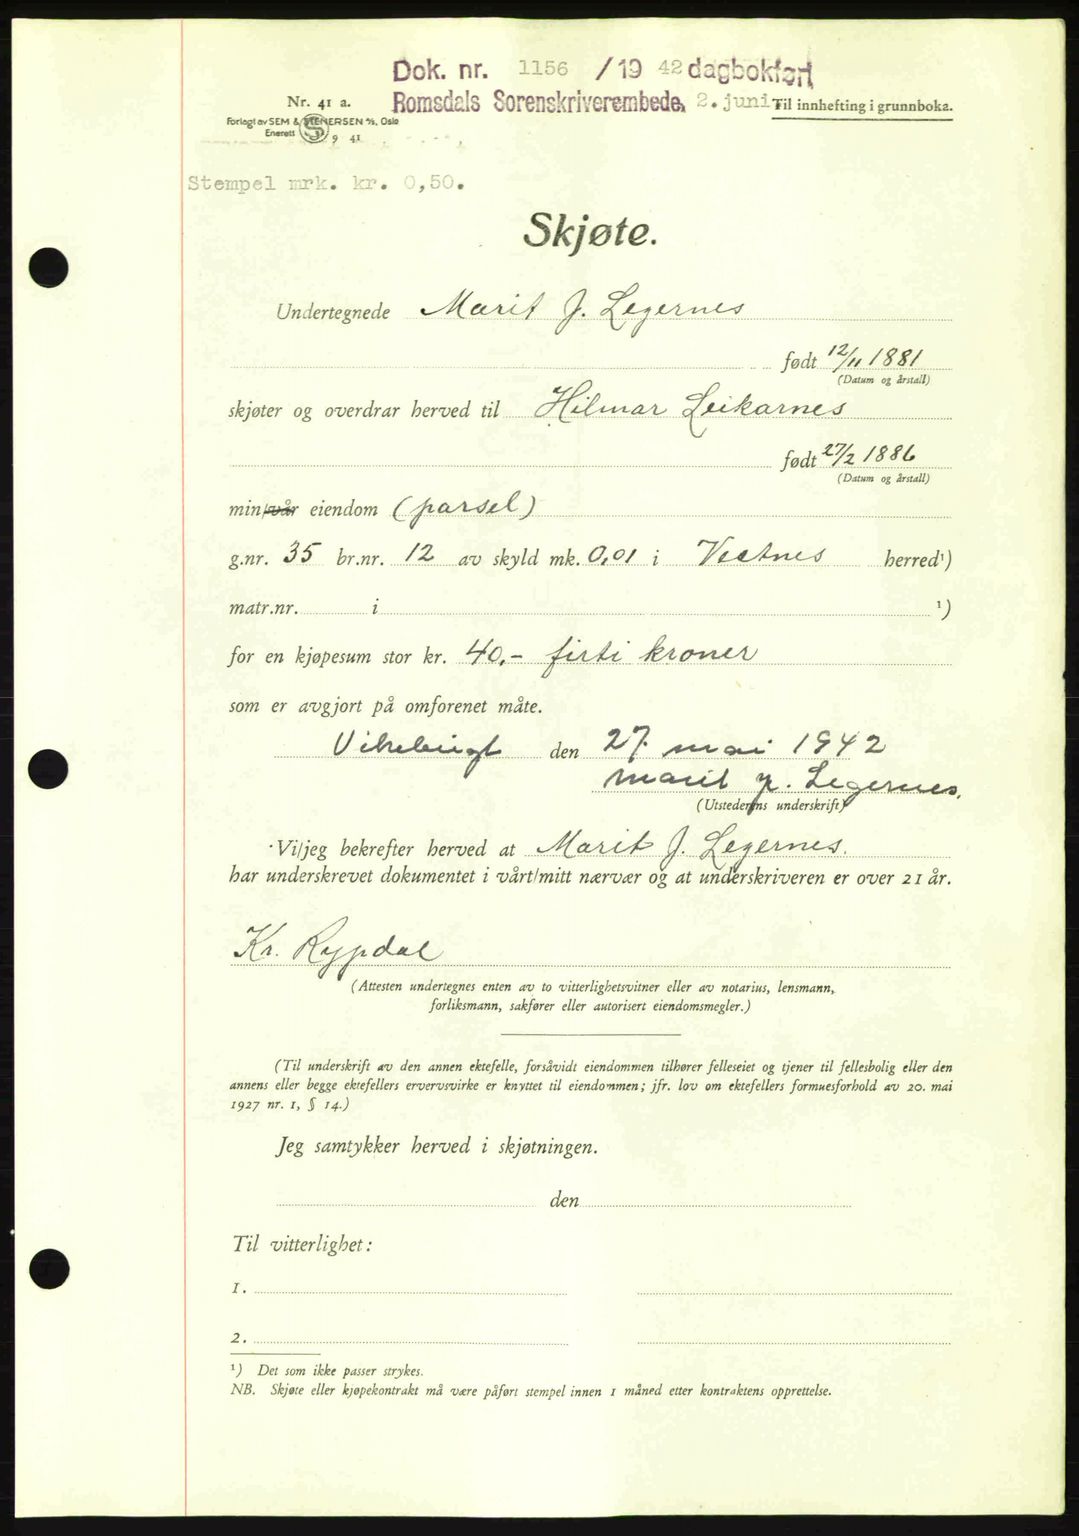 Dok. nr. 1156 /19 42 dagbokført
Nr. 41 a. Romsdals Sorenskriverembede, 2. juni Til innhefting i grunnboka.
Forlagt av SEM & STENERSEN A/S, Oslo
Enerett S 9 41
Stempel mrk. kr. 0,50.
Skjøte.
Undertegnede Marit J. Legernes
født 12/11 1881
(Datum og årstall)
skjøter og overdrar herved til Hilmar Leikarnes
født 27/2 1886
(Datum og årstall)
min/vår eiendom (parsel)
g.nr. 35 br.nr. 12 av skyld mk. 0,01 i Vestnes herred¹)
matr.nr. i ¹)
for en kjøpesum stor kr. 40.- firti kroner
som er avgjort på omforenet måte.
Vikebugt den 27. mai 1942
Marit J. Legernes.
(Utstederens underskrift)
Vi/jeg bekrefter herved at Marit J. Legernes.
har underskrevet dokumentet i vårt/mitt nærvær og at underskriveren er over 21 år.
Kr. Rypdal
(Attesten undertegnes enten av to vitterlighetsvitner eller av notarius, lensmann,
forliksmann, sakfører eller autorisert eiendomsmegler.)
(Til underskrift av den annen ektefelle, forsåvidt eiendommen tilhører felleseiet og tjener til fellesbolig eller den
annens eller begge ektefellers ervervsvirke er knyttet til eiendommen; jfr. lov om ektefellers formuesforhold av 20. mai
1927 nr. 1, § 14.)
Jeg samtykker herved i skjøtningen.
den
Til vitterlighet:
1.
2.
¹) Det som ikke passer strykes.
NB. Skjøte eller kjøpekontrakt må være påført stempel innen 1 måned etter kontraktens opprettelse.